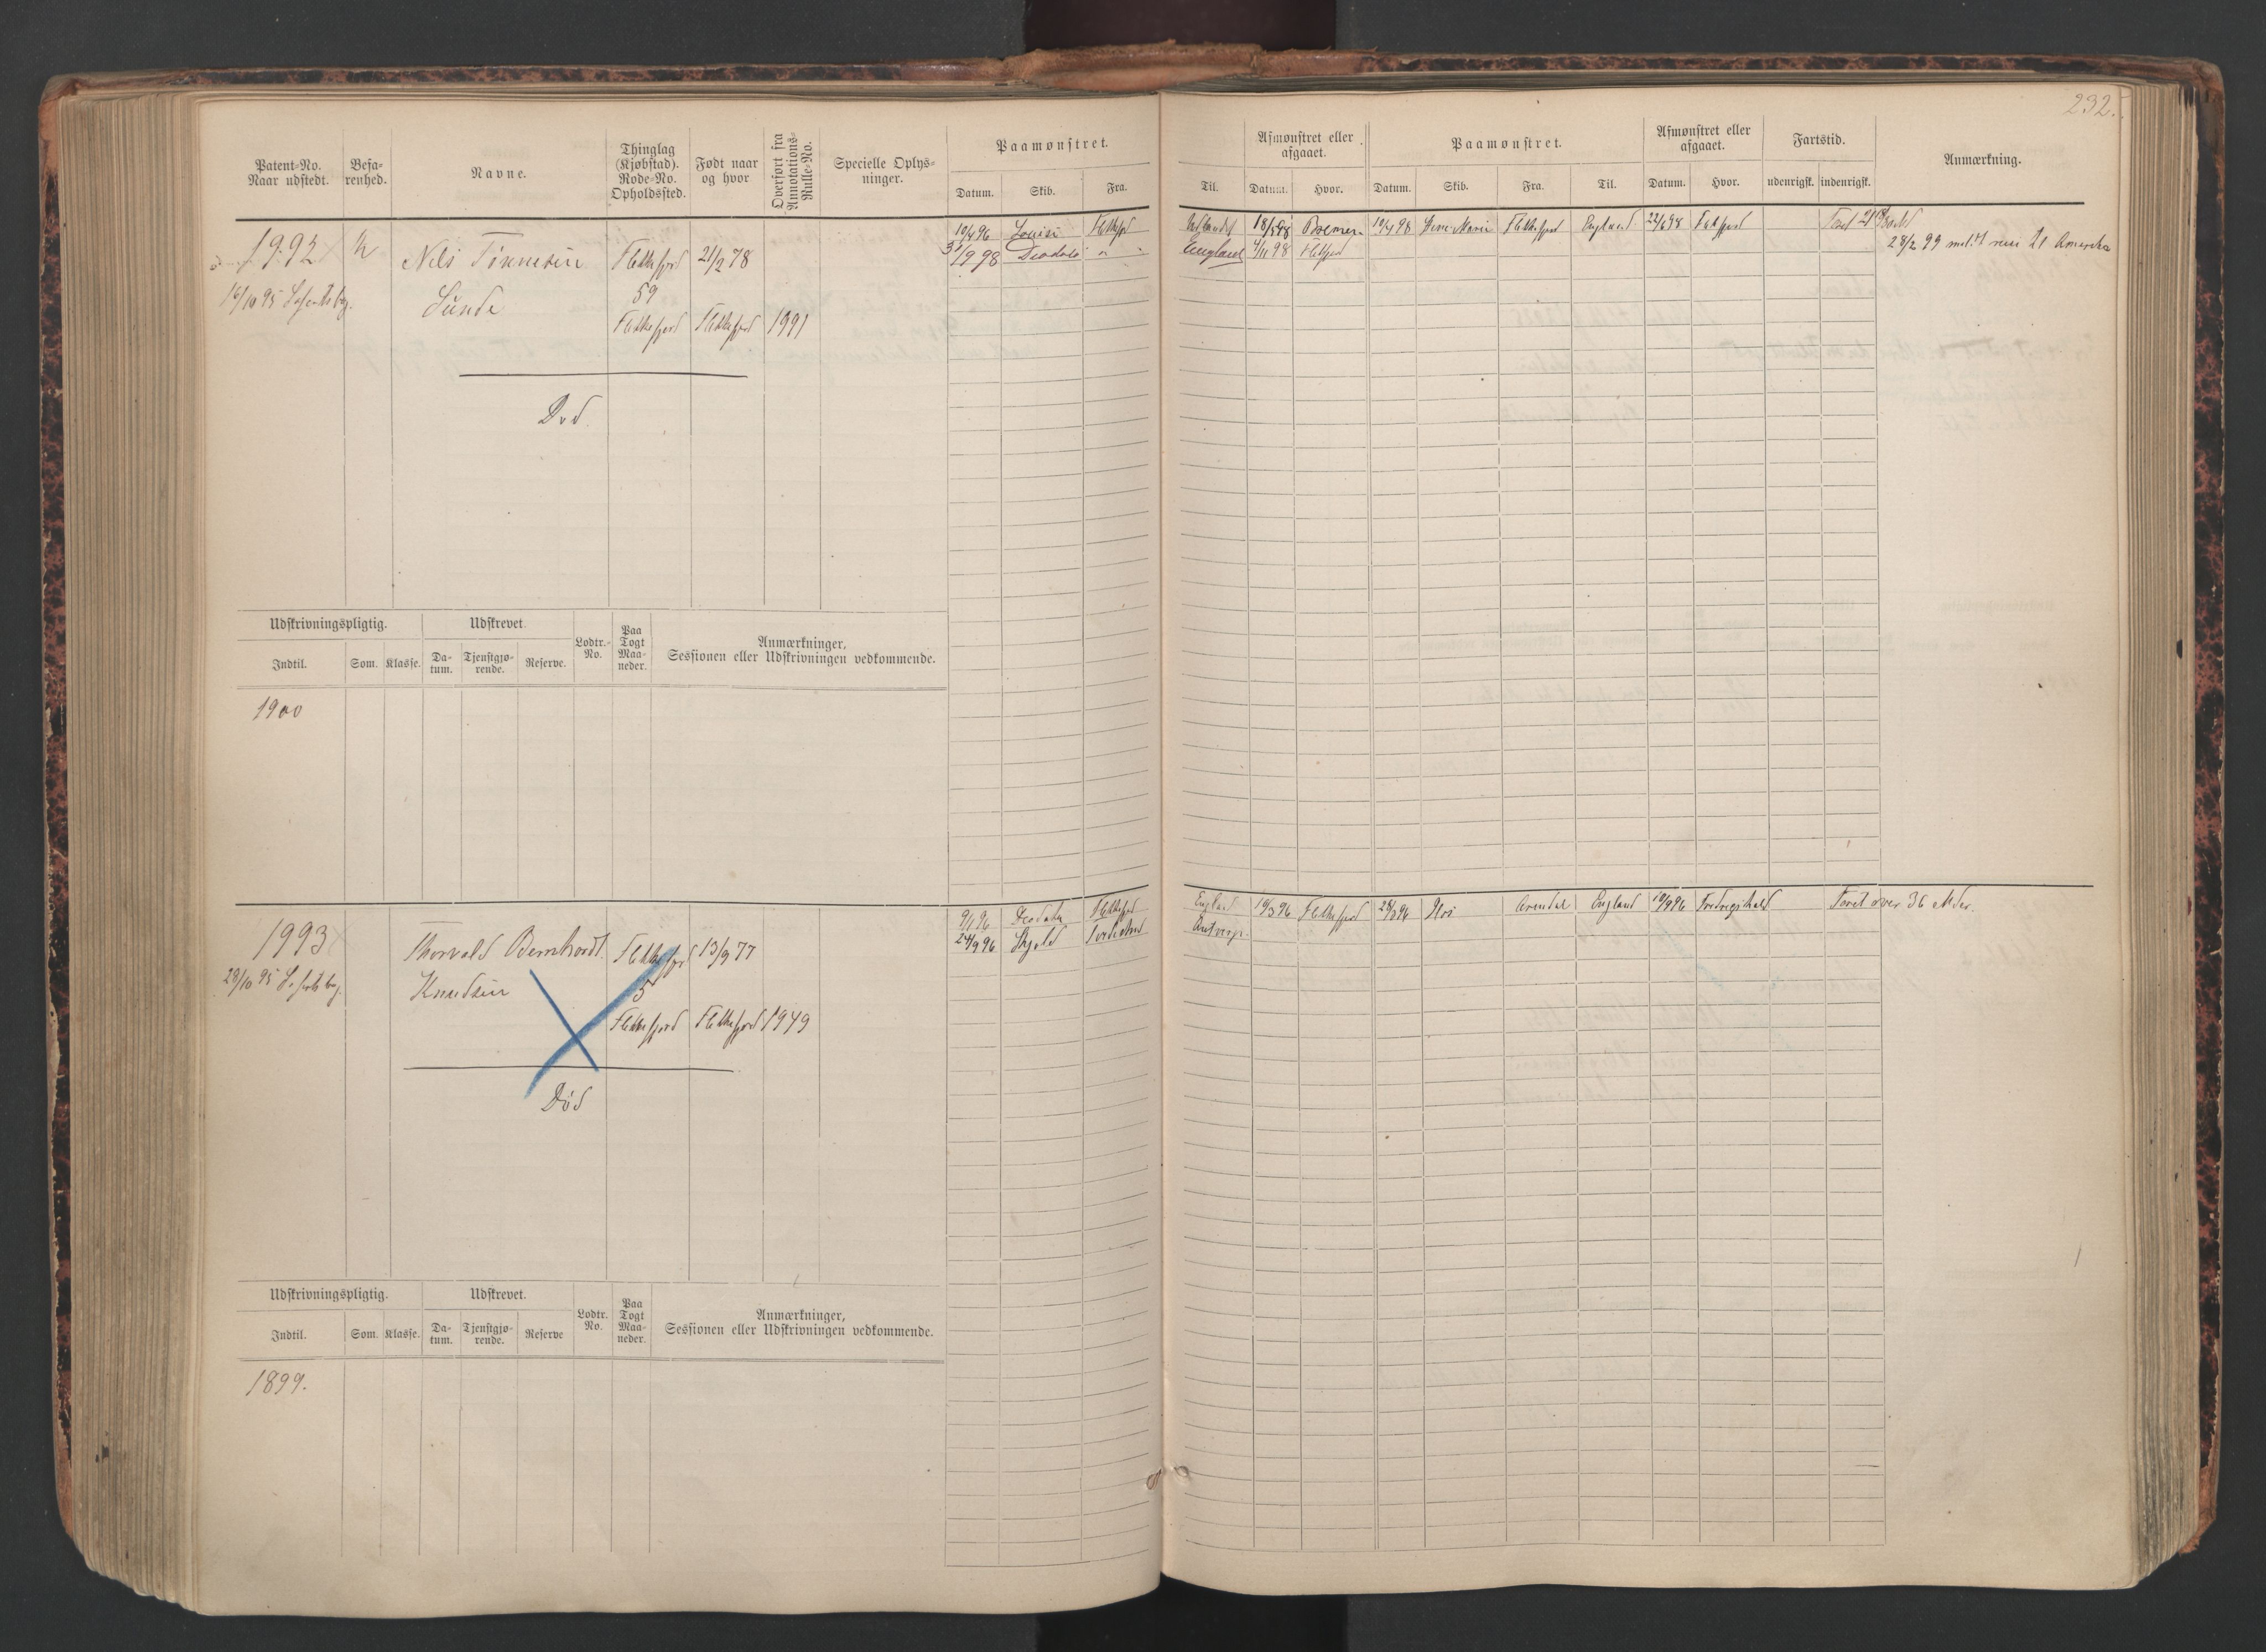 232.
Patent-No.
Naar udstedt.
Befa-
renhed.
Navne.
Thinglag
(Kjøbstad).
Rode-No.
Opholdssted.
Født naar
og hvor
Overført fra
Annotations-
Rulle-No.
Specielle Oplys-
ninger.
Paamønstret.
Datum. Skib. Fra.
Til.
Afmønstret eller
afgaaet.
Datum. Hvor.
Paamønstret.
Datum. Skib. Fra. Til.
Afmønstret eller
afgaaet.
Datum. Hvor.
Fartstid.
udenrigsk. indenrigsk.
Anmærkning.
1992
16/10 95
Nils Tönnesen
Sunde
Flekkefjord
59
Flekkefjord
21/2 78
Flekkefjord
1991
Død.
10/4 96 Louise Flekkefjord
31/1 98
Udlandet 18/5 98 Bremen 19/4 98 Flekkefjord England 22/6 98 Flekkefjord
England 4/11 98 Flekkefjord
28/2 99 meldt reise til Amerika
Udskrivningspligtig.
Indtil. Som. Klasse.
Udskrevet.
Da-
tum.
Tjenstgjø-
rende.
Reserve.
Lodtr.-
No.
Paa
Togt
Maa-
neder.
Anmærkninger,
Sessionen eller Udskrivningen vedkommende.
1900
1993
28/10 95
Thorvald Bernhardt
Knudsen
Flekkefjord
5
Flekkefjord
13/9 77
Flekkefjord
1949
Død
9/1 96 Deodata Flekkefjord
24/9 96 Skjold
England 16/3 96 Flekkefjord 28/3 96 Arendal England 19/9 96 Fredrikshald Faret over 36 Mdr.
Antwerp.
Udskrivningspligtig.
Indtil. Som. Klasse.
Udskrevet.
Da-
tum.
Tjenstgjø-
rende.
Reserve
Lodtr.
No.
Paa
Togt
Maa-
neder.
Anmærkninger,
Sessionen eller Udskrivningen vedkommende.
1899.